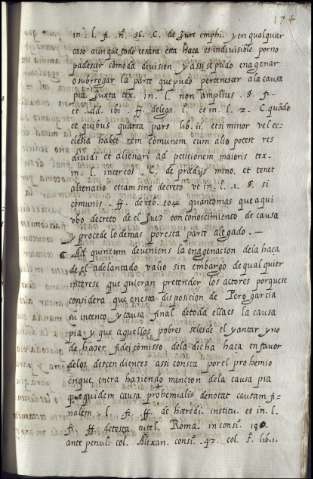 174
in. l. fi. ff. si. C. de Jure emphi. y en qualquier
caso aunque todo cesara esta haca es indivisible por no
padescer comoda division y assi se pudo enagenar
o subrogar la parte que pudo pertenescer a la causa
pia Juxta tex. in. l. non amplius. §. fi.
et. ibi. ff. de lega. 1. et in. l. 2. C. quãdo
et quibus quarta pars lib. ii. et si minor vel ec
clesia habet rem comunem cum alio potest res
dividi et alienari ad petitionem maioris tex.
in. l. inter eos. C. de prædys mino. et tenet
alienatio etiam sine decreto vt in. l. 1. §. si
comunis. ff. de reb. eorũ quanto mas que aqui
vbo decreto de el Juez con conoscimiento de causa
y procede lo demas por esta parte alegado. —
Ad quintum deveniens la enagenacion dela haca
de el adelantado valio sin embargo de qualquier
interese que quieran pretender los actores porque se
considera que en esta disposicion de Pero garcia
su intento y causa final de toda ella es la causa
pia y que aquellos pobres el yantar y no
de hazer fideicomisso dela dicha haca en favor
delos descendientes assi consta por el prohemio
en que intra haziendo mencion dela causa pia
quequidem causa prohemialis denotat causam fi
nalem. l. fi. ff. de hæredi. institu. et in. l.
fi. ff. de testa. mitel. Roma. in consi. 190.
ante penul. col. Alexan. consi. 92. col. f. lib. 1.